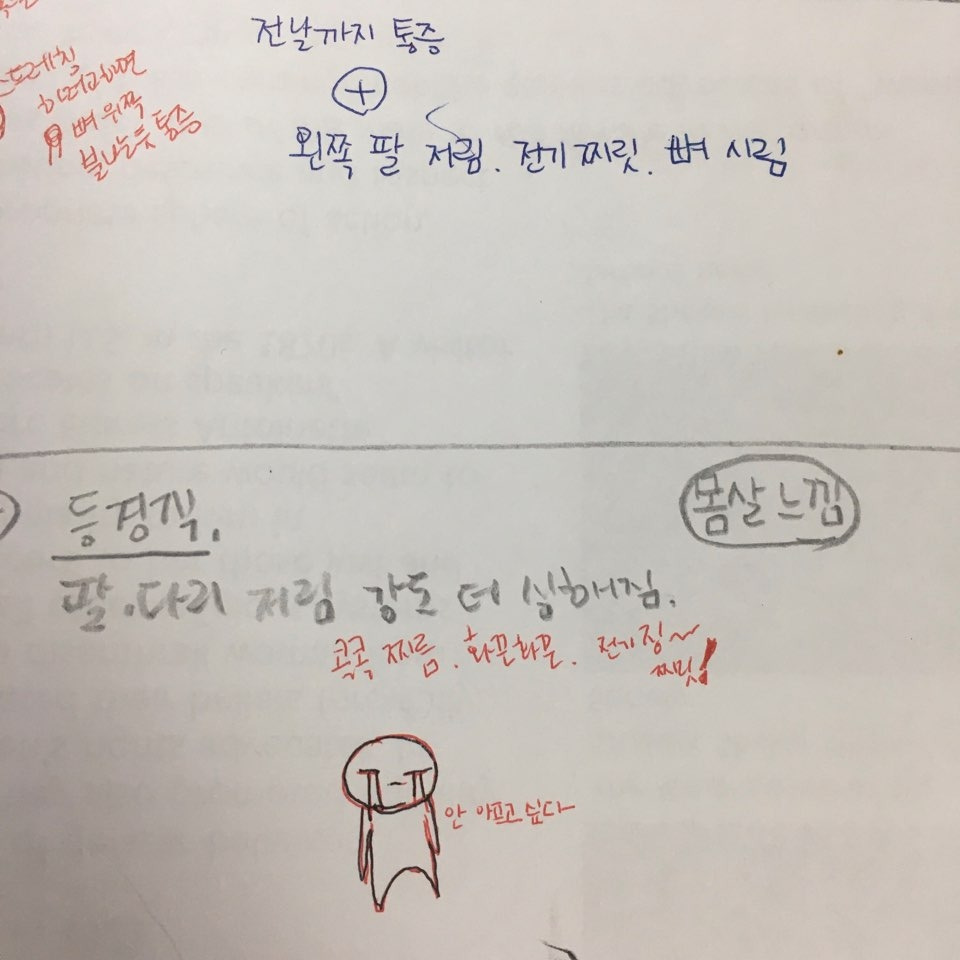 전날까지 통증
+
왼쪽 팔 저림. 전기 찌릿. 뼈 시림
스트레칭
하려하면
뼈 위쪽
불나는듯 통증
등경직.
몸살 느낌
팔.다리 저림 강도 더 심해짐.
콕콕 찌름. 화끈화끈. 전기 징~
찌릿!
안 아프고 싶다